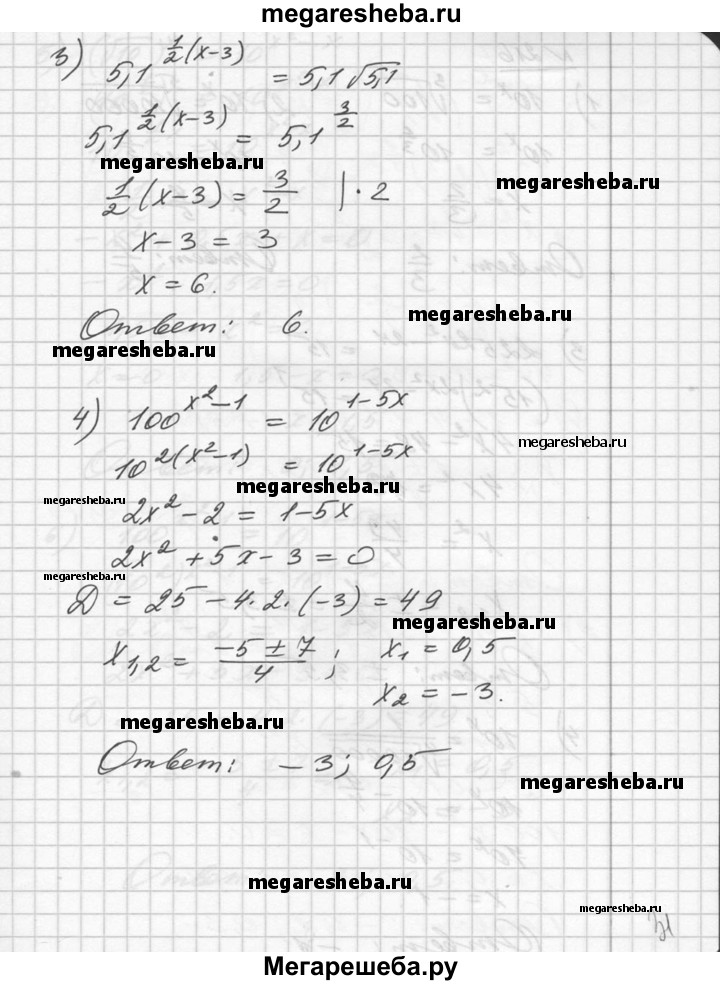 megaresheba.ru
3) 5,1^{\frac{1}{2}(x-3)} = 5,1\sqrt{5,1}
5,1^{\frac{1}{2}(x-3)} = 5,1^{\frac{3}{2}}
megaresheba.ru
megaresheba.ru
\frac{1}{2}(x-3) = \frac{3}{2} | · 2
x-3 = 3
x = 6.
megaresheba.ru
Ответ: 6.
megaresheba.ru
4) 100^{x^2-1} = 10^{1-5x}
megaresheba.ru
10^{2(x^2-1)} = 10^{1-5x}
megaresheba.ru
megaresheba.ru
2x^2 - 2 = 1-5x
2x^2 + 5x - 3 = 0
megaresheba.ru
D = 25 - 4·2·(-3) = 49
megaresheba.ru
x_{1,2} = \frac{-5 ± 7}{4}; x_1 = 0,5
x_2 = -3.
megaresheba.ru
Ответ: -3; 0,5
megaresheba.ru
megaresheba.ru
megaresheba.ru
Мегарешеба.ру